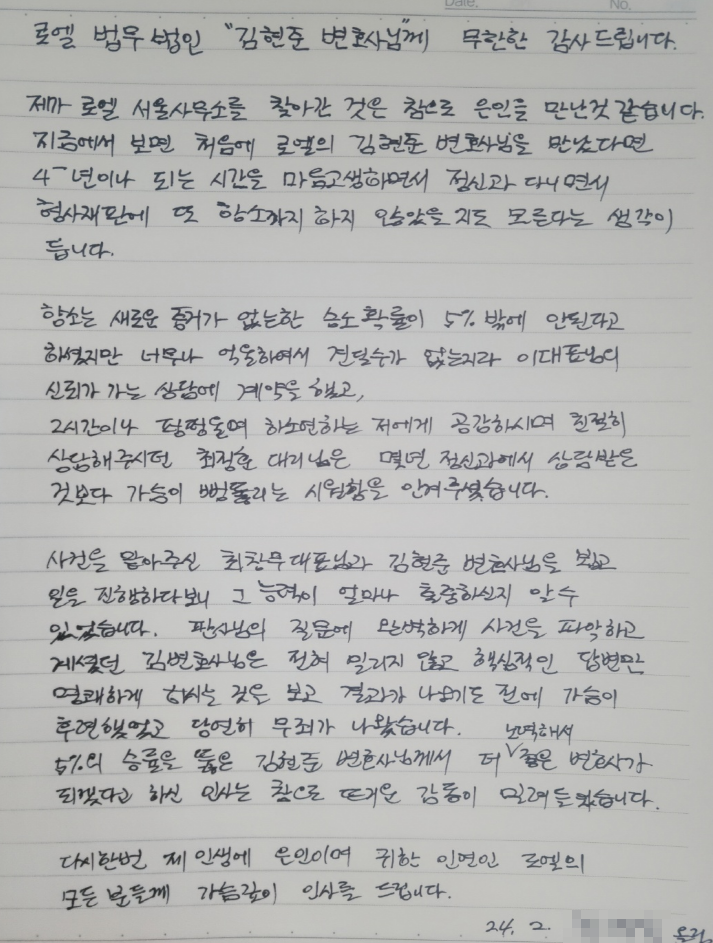 Date.
No.
로엘 법무법인 "김현준 변호사님"께 무한한 감사드립니다.
제가 로엘 서울사무소를 찾아간 것은 참으로 은인을 만난것 같습니다.
지금에서 보면 처음에 로엘의 김현준 변호사님을 만났다면
4~년이나 되는 시간을 마음고생하면서 정신과 다니면서
형사재판에 또 항소까지 하지 않았을지도 모른다는 생각이
듭니다.
항소는 새로운 증거가 없는한 승소 확률이 5%밖에 안된다고
하셨지만 너무나 억울하여서 견딜수가 없는지라 이대표님의
신뢰가 가는 상담에 계약을 했고,
2시간이나 펑펑울며 하소연하는 저에게 공감하시며 친절히
상담해주시던 최정훈 대리님은 몇년 정신과에서 상담받은
것보다 가슴이 뻥뚫리는 시원함을 안겨주셨습니다.
사건을 맡아주신 최창무대표님과 김현준 변호사님을 뵙고
일을 진행하다보니 그 능력이 얼마나 출중하신지 알수
있었습니다. 판사님의 질문에 완벽하게 사건을 파악하고
계셨던 김변호사님은 전혀 밀리지 않고 핵심적인 답변만
명쾌하게 하시는 것을 보고 결과가 나오기도 전에 가슴이
후련했었고 당연히 무죄가 나왔습니다.
5%의 승률을 뚫은 김현준 변호사님께서 더 노력해서 좋은 변호사가
되겠다고 하신 인사는 참으로 뜨거운 감동이 밀려들었습니다.
다시한번 제 인생에 은인이며 귀한 인연인 로엘의
모든 분들께 가슴깊이 인사를 드립니다.
24. 2. 올림